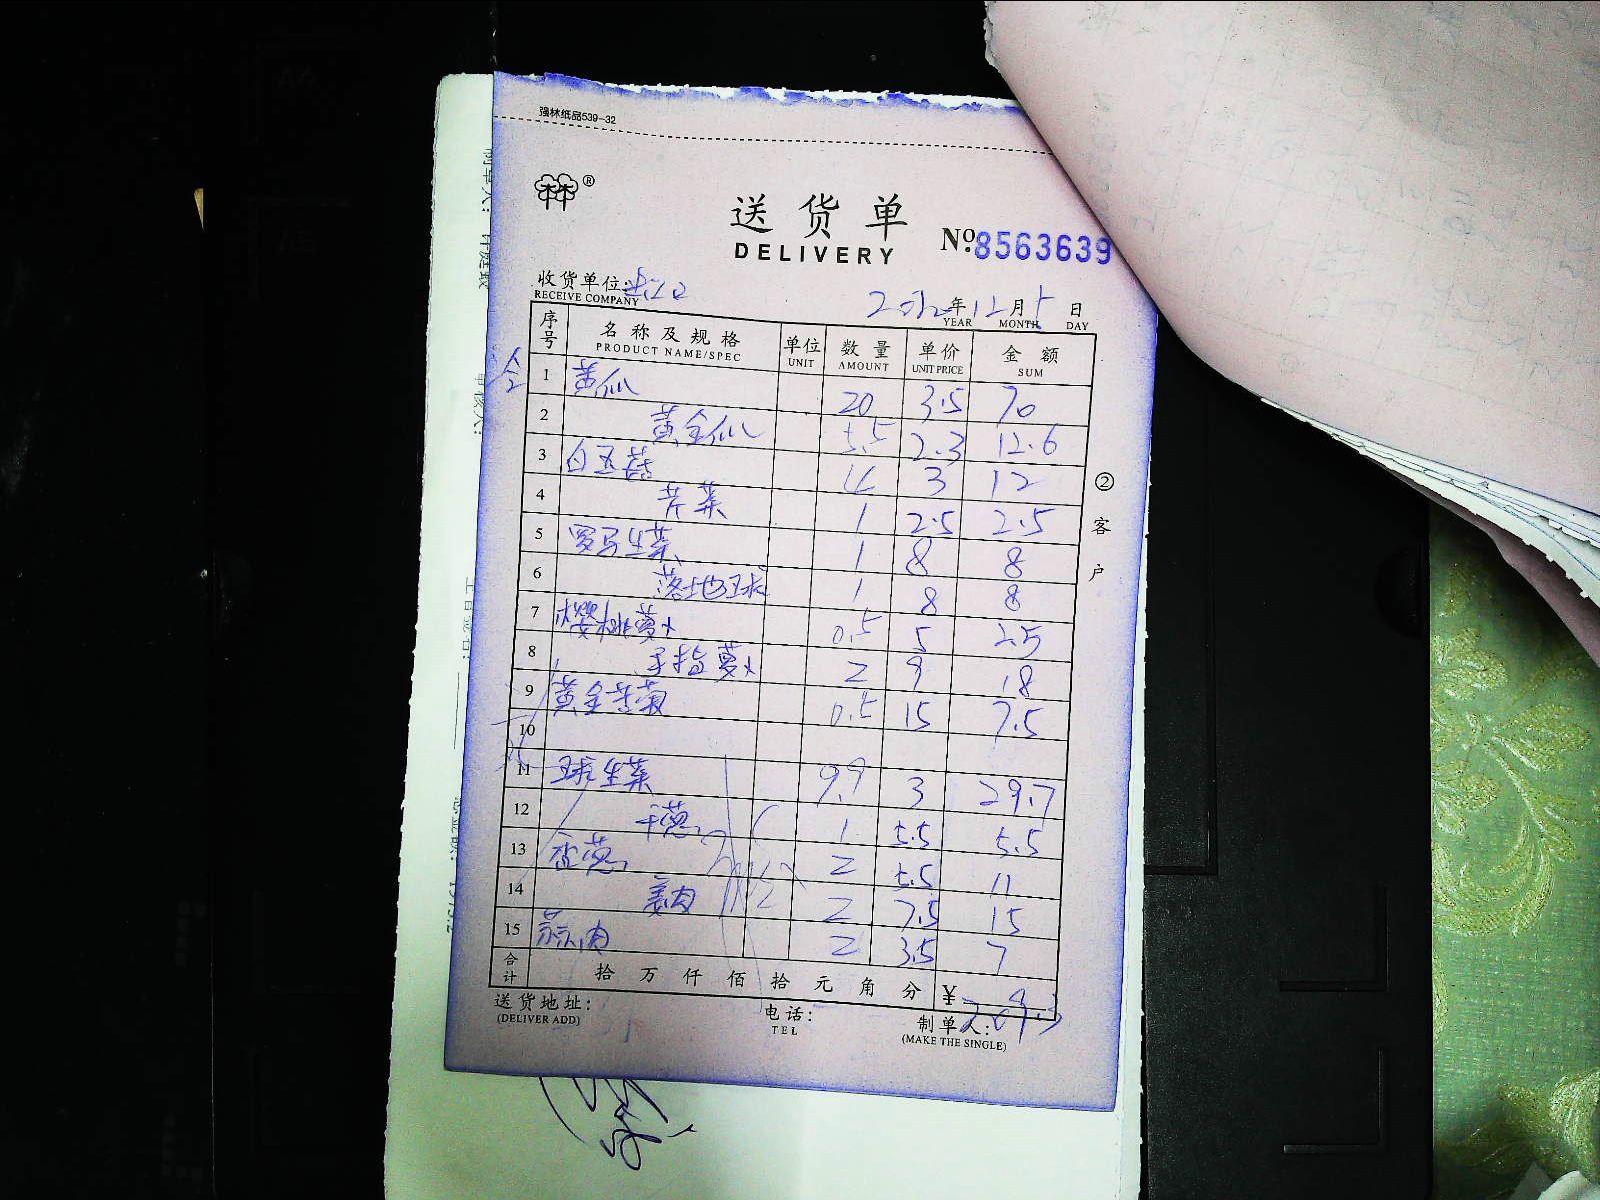 强林纸品539-32
®
送货单
DELIVERY
№ 8563639
收货单位:
RECEIVE COMPANY
年 12 月 日
YEAR MONTH DAY
序号 名称及规格 单位 数量 单价 金额
PRODUCT NAME/SPEC UNIT AMOUNT UNIT PRICE SUM
1 黄仙 20 3.5 70
2 黄金仙 5.5 2.3 12.6
3 白玉菇 4 3 12
4 芹菜 1 2.5 2.5
5 罗马生菜 1 8 8
6 落地球 1 8 8
7 樱桃萝卜 0.5 5 2.5
8 手指萝卜 2 9 18
9 黄金苦菊 0.5 15 7.5
10
11 球生菜 9.9 3 29.7
12 干葱 1 5.5 5.5
13 香葱 2 5.5 11
14 姜肉 2 7.5 15
15 蒜肉 2 3.5 7
合计 拾 万 仟 佰 拾 元 角 分 ¥ 209.3
送货地址:
(DELIVER ADD)
电话:
TEL
制单人:
(MAKE THE SINGLE)
②客户
制单人:
审核人: